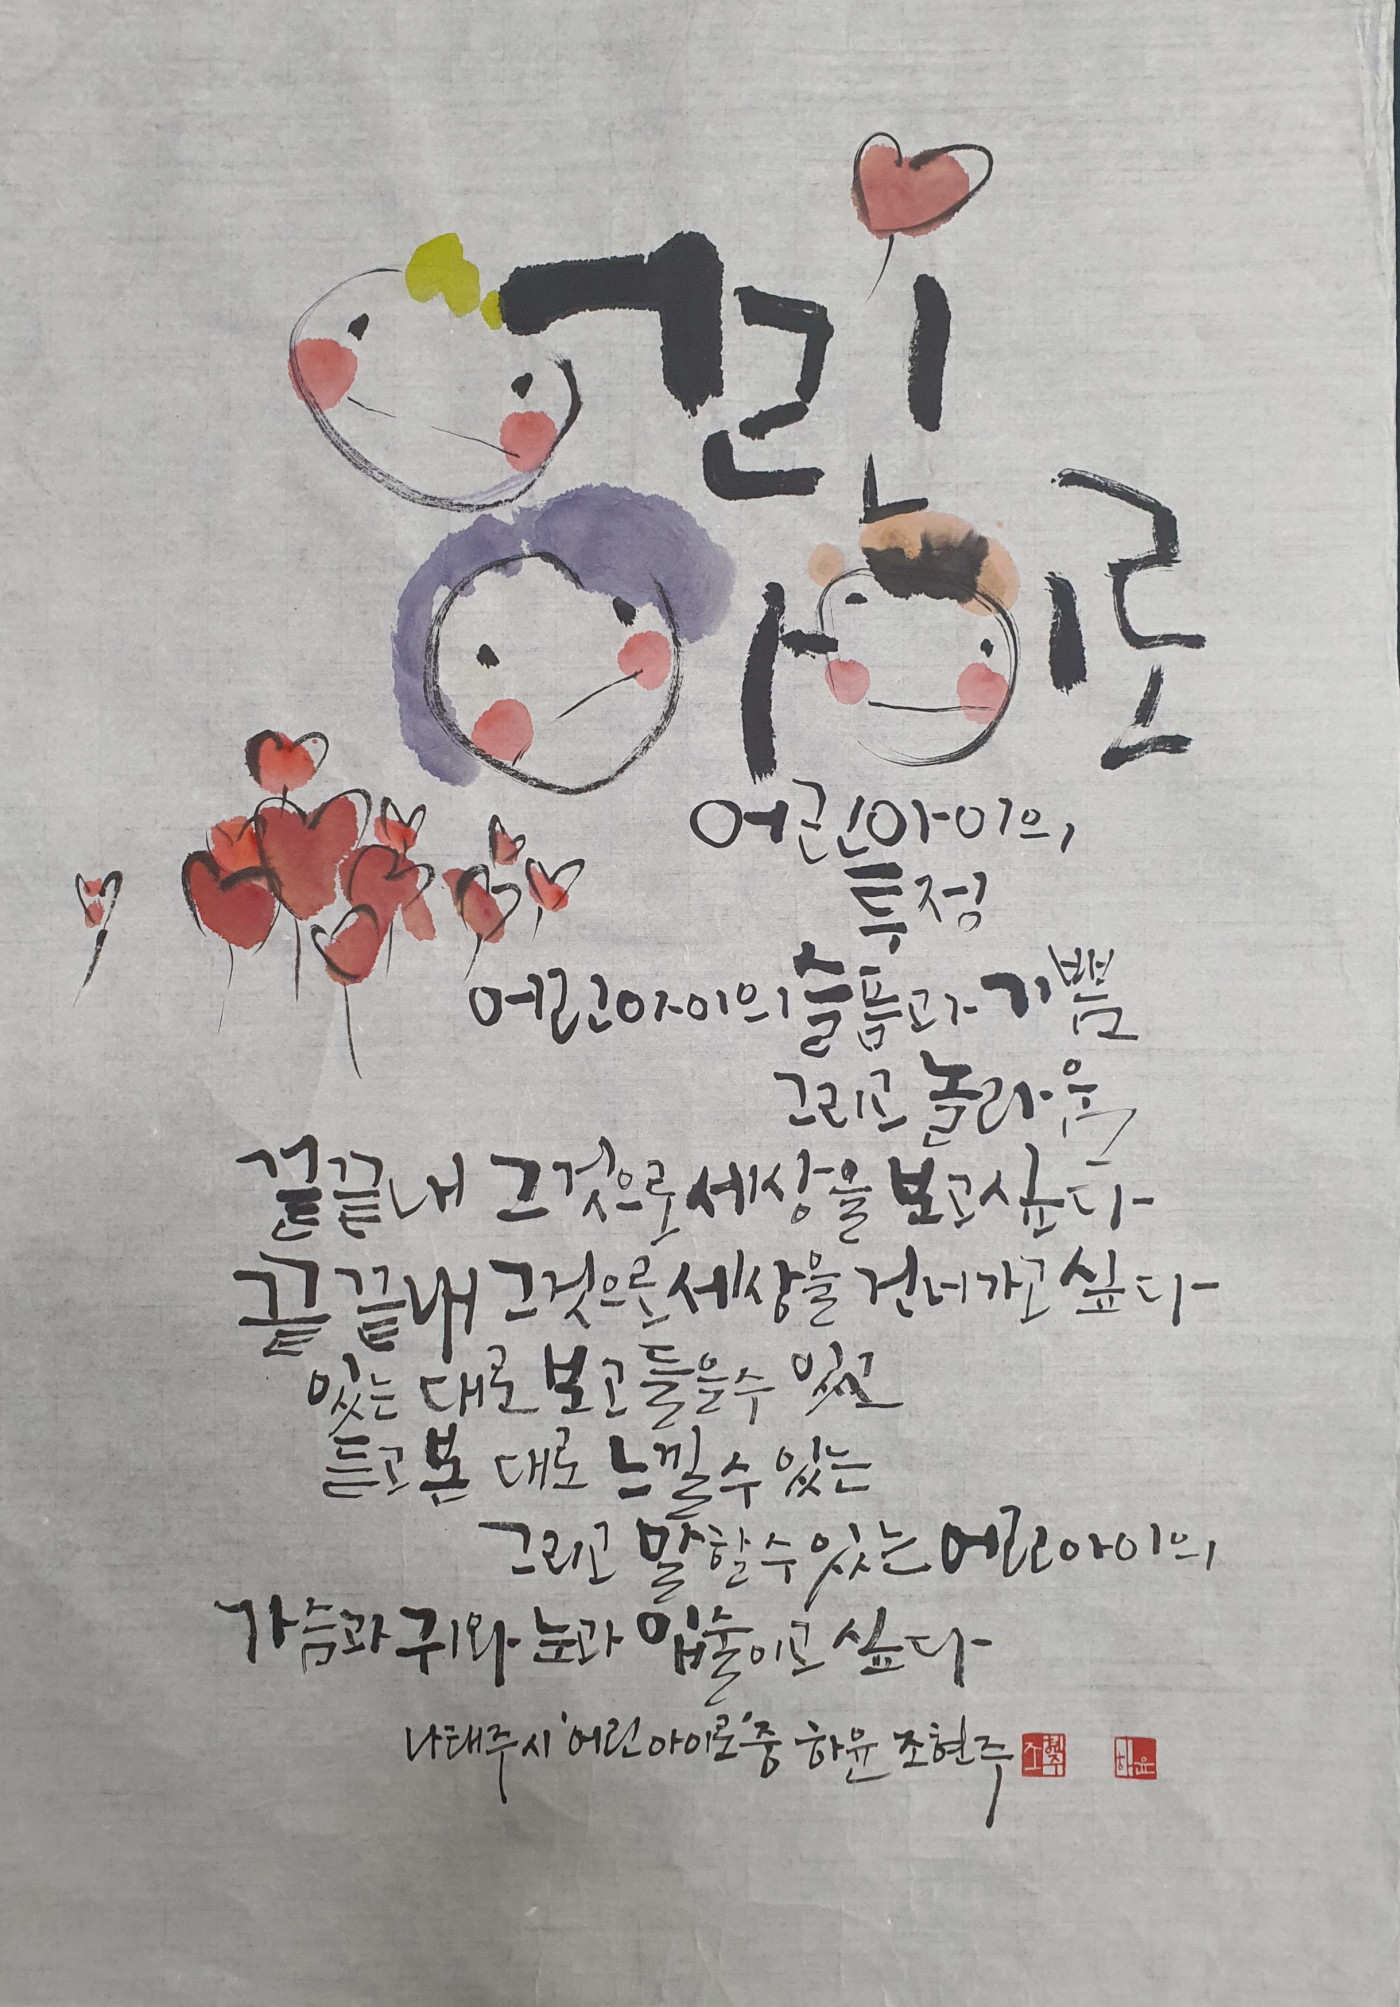 어린
아이로
어린아이의
투정
어린아이의 슬픔과 기쁨
그리고 놀라움
끝끝내 그것으로 세상을 보고 싶다
끝끝내 그것으로 세상을 건너가고 싶다
있는 대로 보고 들을 수 있고
듣고 본 대로 느낄 수 있는
그리고 말할 수 있는 어린아이의
가슴과 귀와 눈과 입술이고 싶다
나태주 시 '어린 아이로' 중 하윤 조현주
조현주
하윤